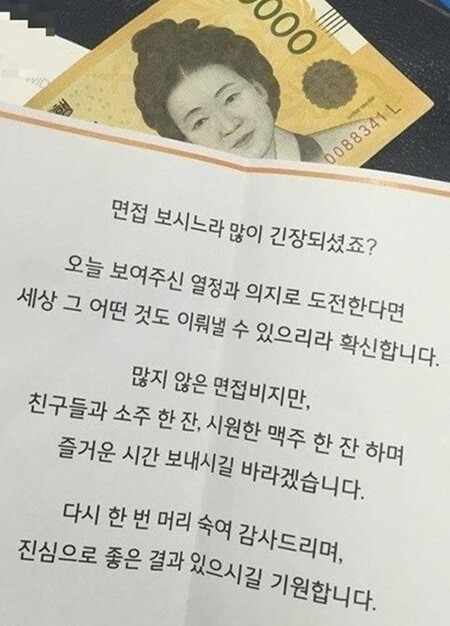 0000
0088341 L
면접 보시느라 많이 긴장되셨죠?
오늘 보여주신 열정과 의지로 도전한다면
세상 그 어떤 것도 이뤄낼 수 있으리라 확신합니다.
많지 않은 면접비지만,
친구들과 소주 한 잔, 시원한 맥주 한 잔 하며
즐거운 시간 보내시길 바라겠습니다.
다시 한 번 머리 숙여 감사드리며,
진심으로 좋은 결과 있으시길 기원합니다.